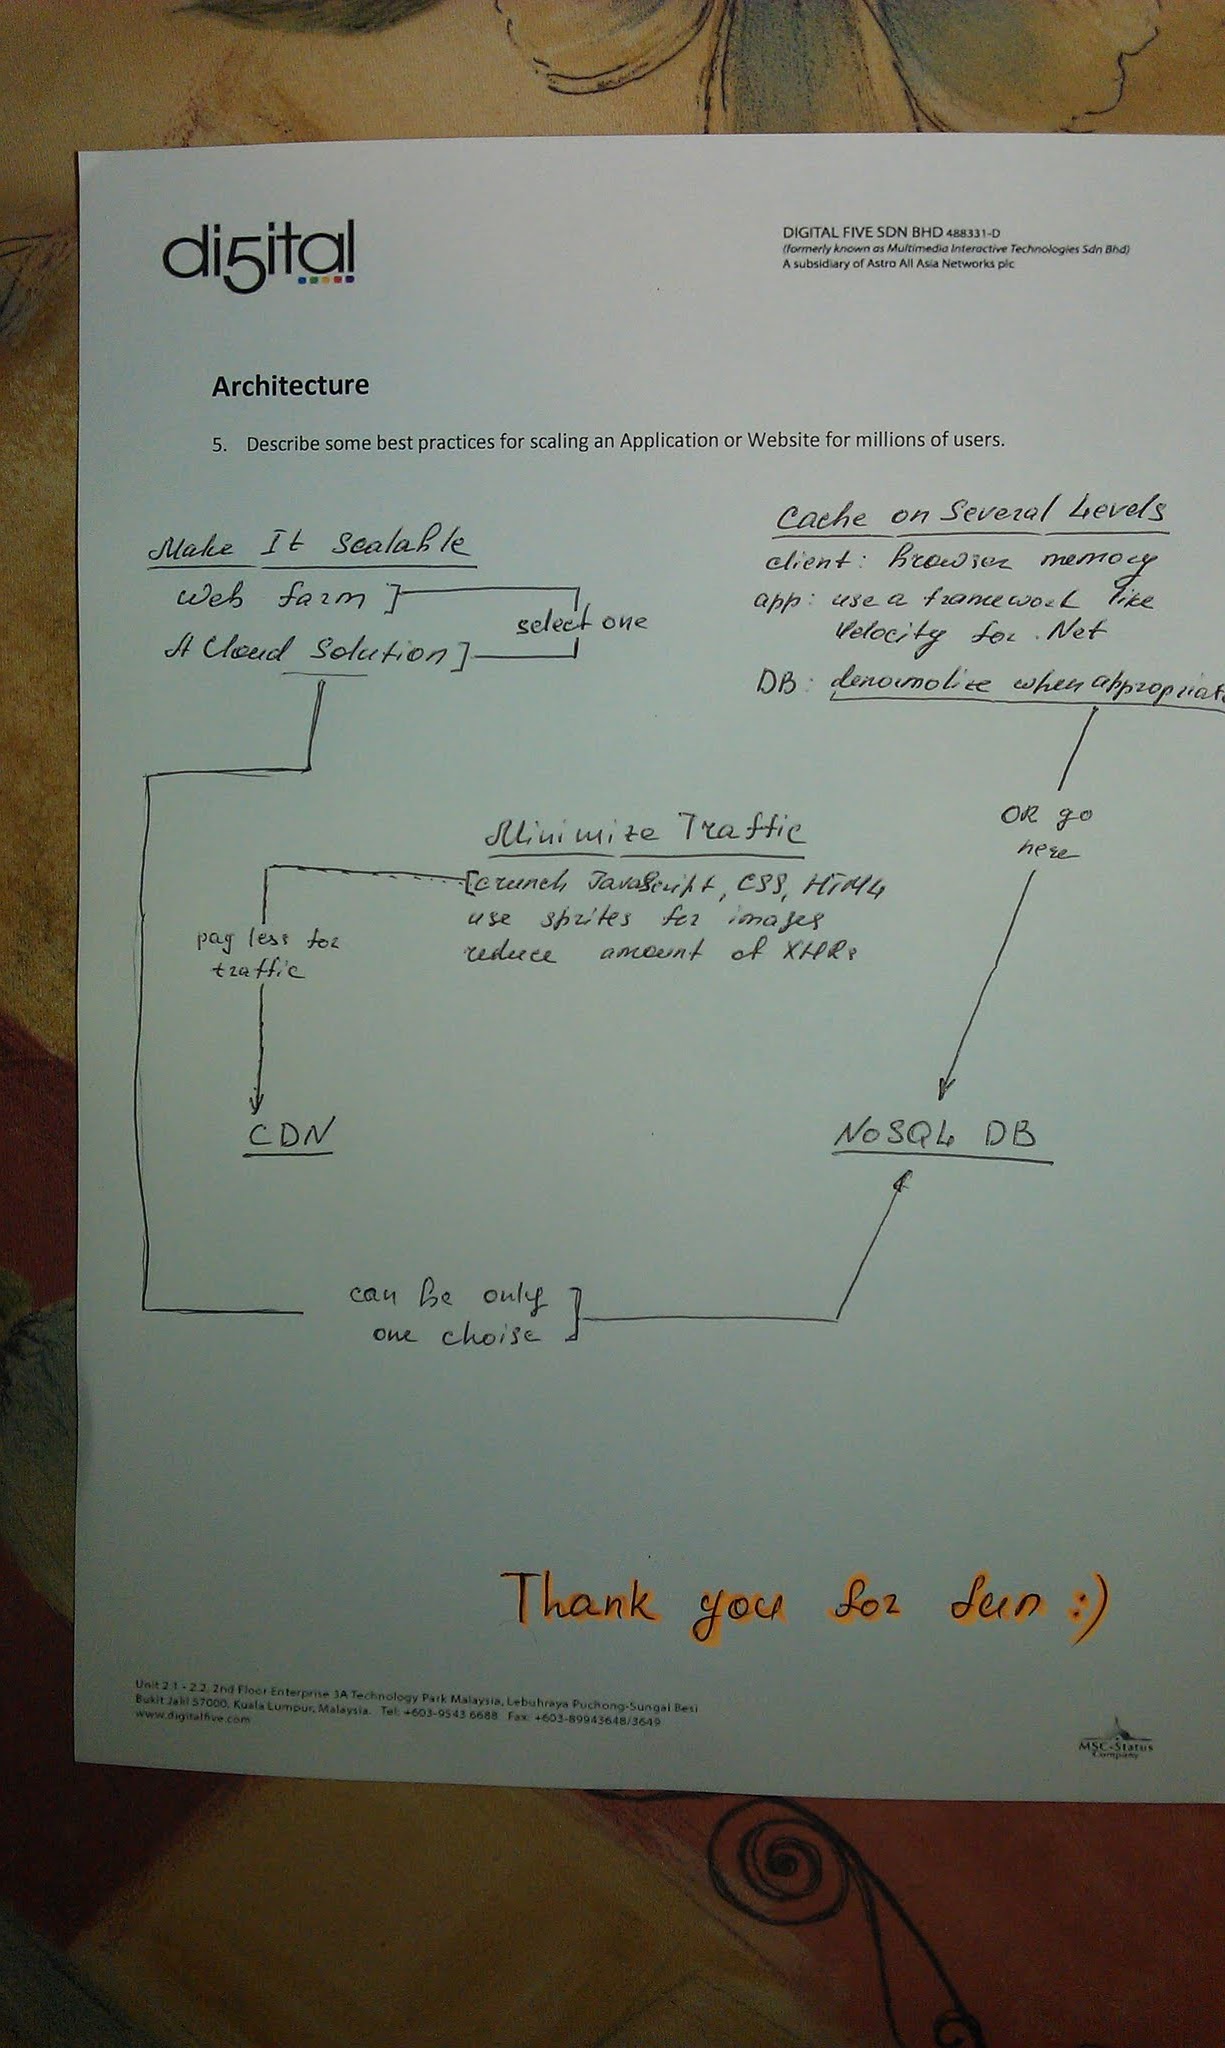 di5ital
DIGITAL FIVE SDN BHD 488331-D
(formerly known as Multimedia Interactive Technologies Sdn Bhd)
A subsidiary of Astro All Asia Networks plc
Architecture
5. Describe some best practices for scaling an Application or Website for millions of users.
Make It Scalable
Web farm ]
select one
A Cloud Solution ]
Cache on Several Levels
client: browser memory
app: use a framework like
Velocity for .Net
DB: denormolize when appropriate
OR go
here
Minimize Traffic
[crunch JavaScript, CSS, HTML
use sprites for images
reduce amount of XHRs
pay less for
traffic
CDN
NoSQL DB
can be only
one choise ]
Thank you for fun :)
Unit 2.1 - 2.2, 2nd Floor Enterprise 3A Technology Park Malaysia, Lebuhraya Puchong-Sungai Besi
Bukit Jalil 57000, Kuala Lumpur, Malaysia. Tel: +603-9543 6688 Fax: +603-89943648/3649
www.digitalfive.com
MSC-Status
Company